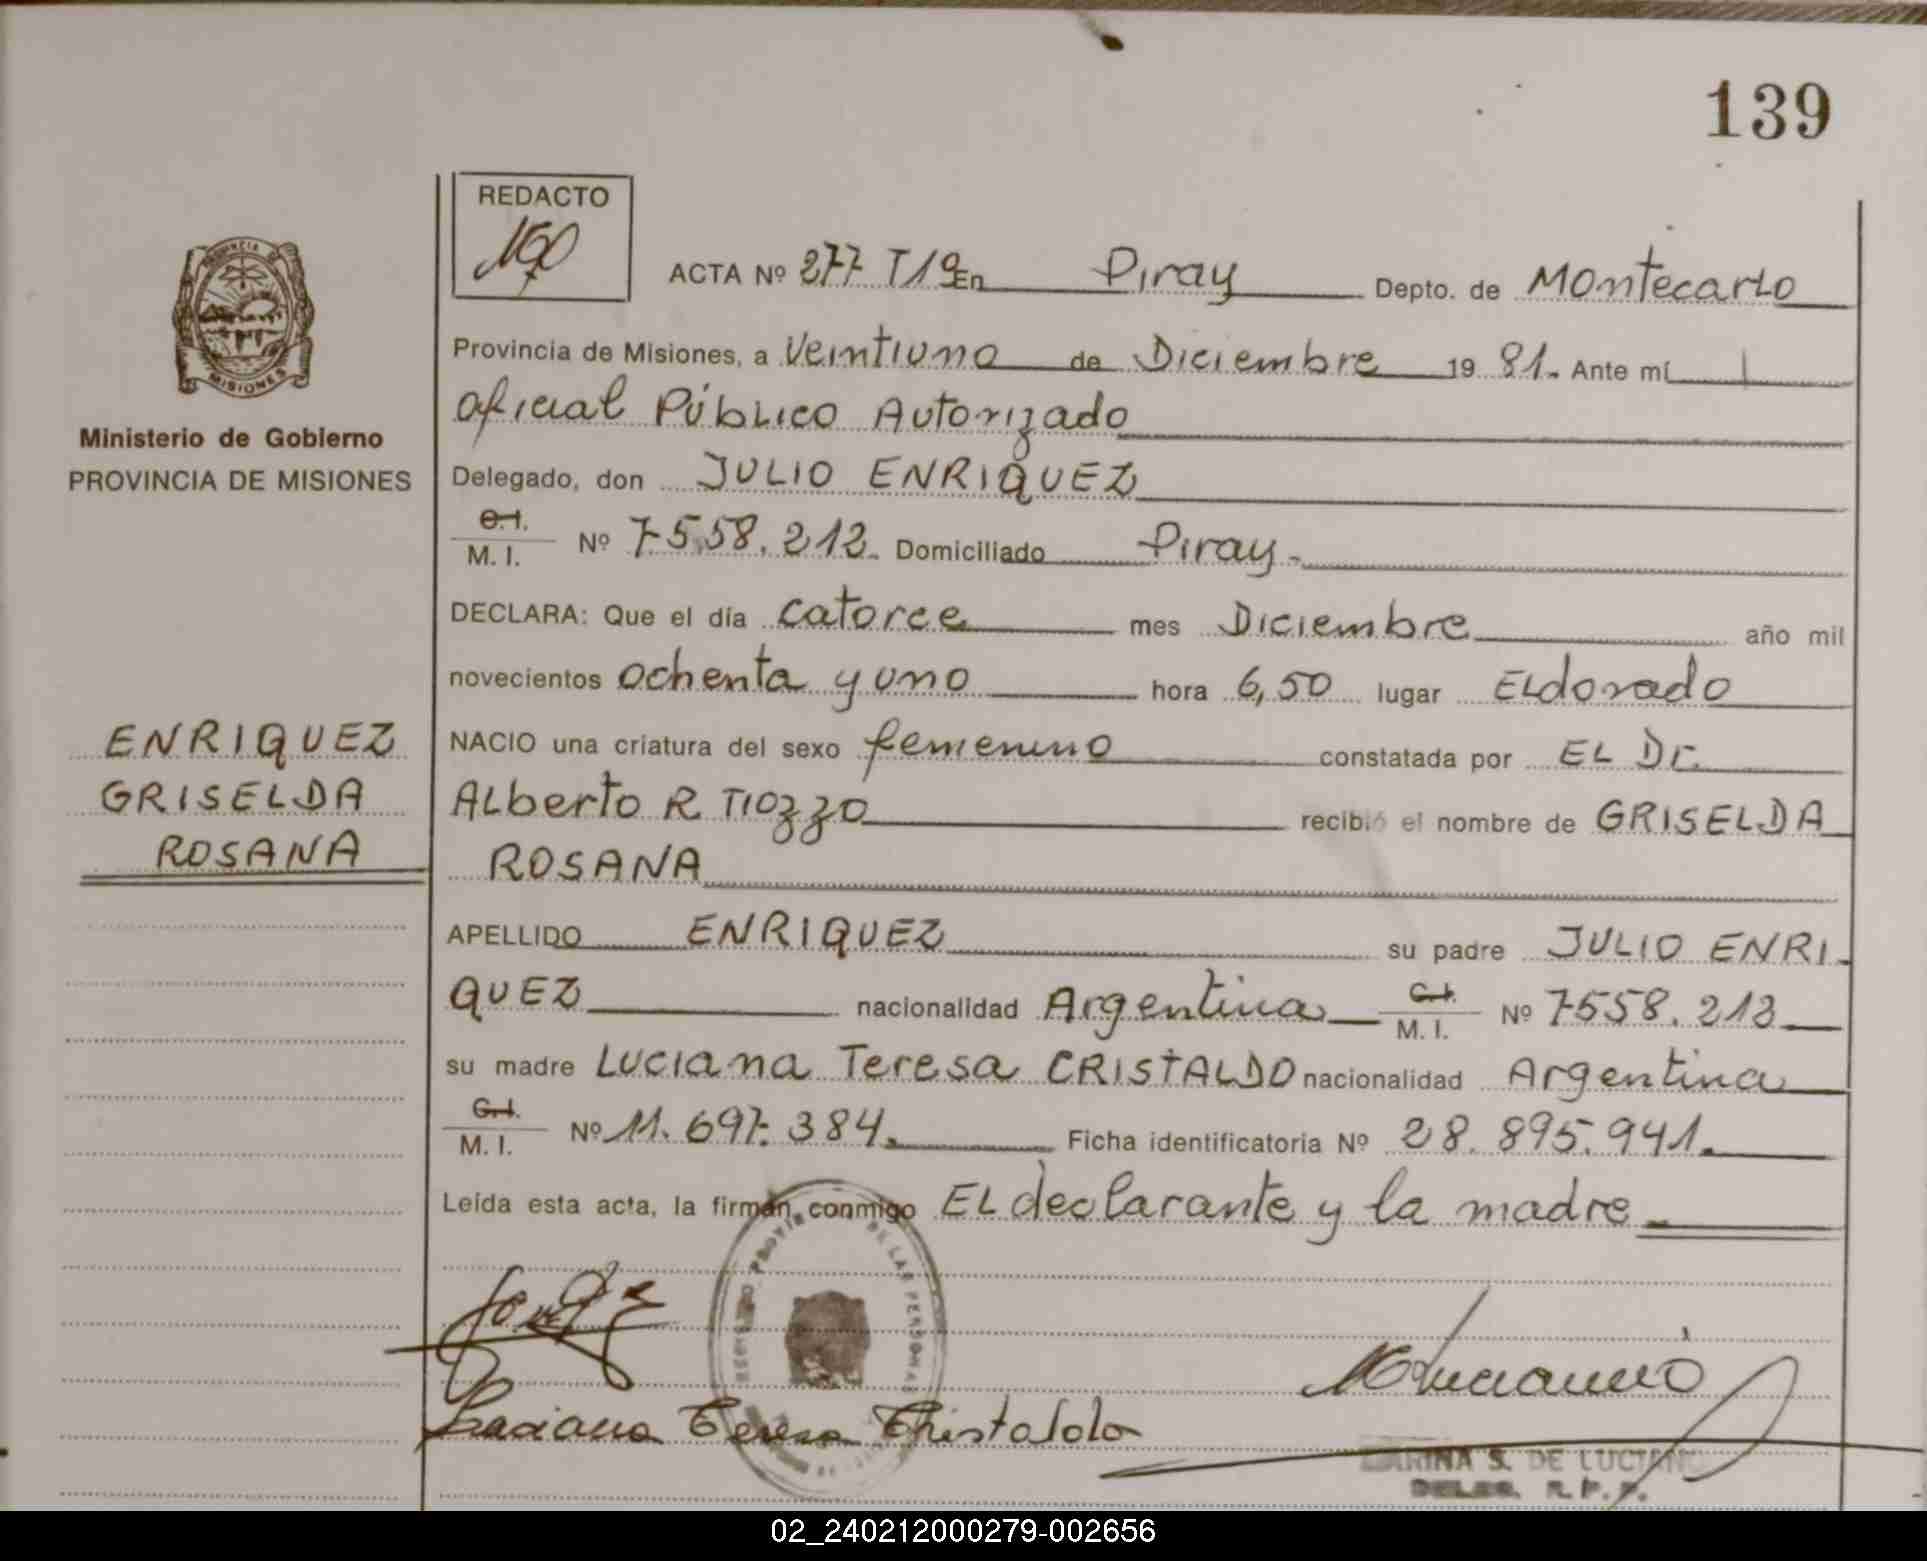 139
REDACTO
ACTA Nº 277 T1º En Piray Depto. de Montecarlo
PROVINCIA DE
MISIONES
Ministerio de Gobierno
PROVINCIA DE MISIONES
Provincia de Misiones, a Veintiuno de Diciembre 19 81. Ante mí
Oficial Público Autorizado
Delegado, don JULIO ENRIQUEZ
C.I.
M. I. Nº 7558.212. Domiciliado Piray.
DECLARA: Que el día catorce mes Diciembre año mil
novecientos ochenta y uno hora 6,50 lugar ELdorado
ENRIQUEZ
GRISELDA
ROSANA
NACIO una criatura del sexo femenino constatada por EL Dr.
ALberto R Tiozzo recibió el nombre de GRISELDA
ROSANA
APELLIDO ENRIQUEZ su padre JULIO ENRI
QUEZ nacionalidad Argentina C.I. M. I. Nº 7558.212
su madre Luciana Teresa CRISTALDO nacionalidad Argentina
C.I.
M. I. Nº 11.697.384. Ficha identificatoria Nº 28.895.941.
Leída esta acta, la firman conmigo EL declarante y la madre
DE LAS PERSONAS
Luciana Teresa Christaldo
MARINA S. DE LUCIANO
DELEG. R. P. P.
02_240212000279-002656